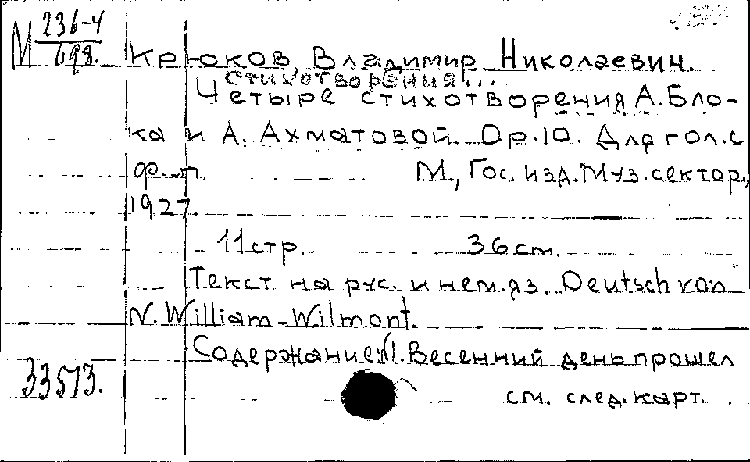 М 236-4
698.
Крюков, Владимир Николаевич.
Стихотворения...
Четыре стихотворения А. Бло-
ка и А. Ахматовой. Op.10. Для гол. с
ф.-п. М., Гос. изд. Муз. сектор,
1927.
11 стр. 36 см.
Текст на рус. и нем. яз. Deutsch von
N. William-Wilmont.
Содержание: 1. Весенний день прошел
33573.
см. след. карт.